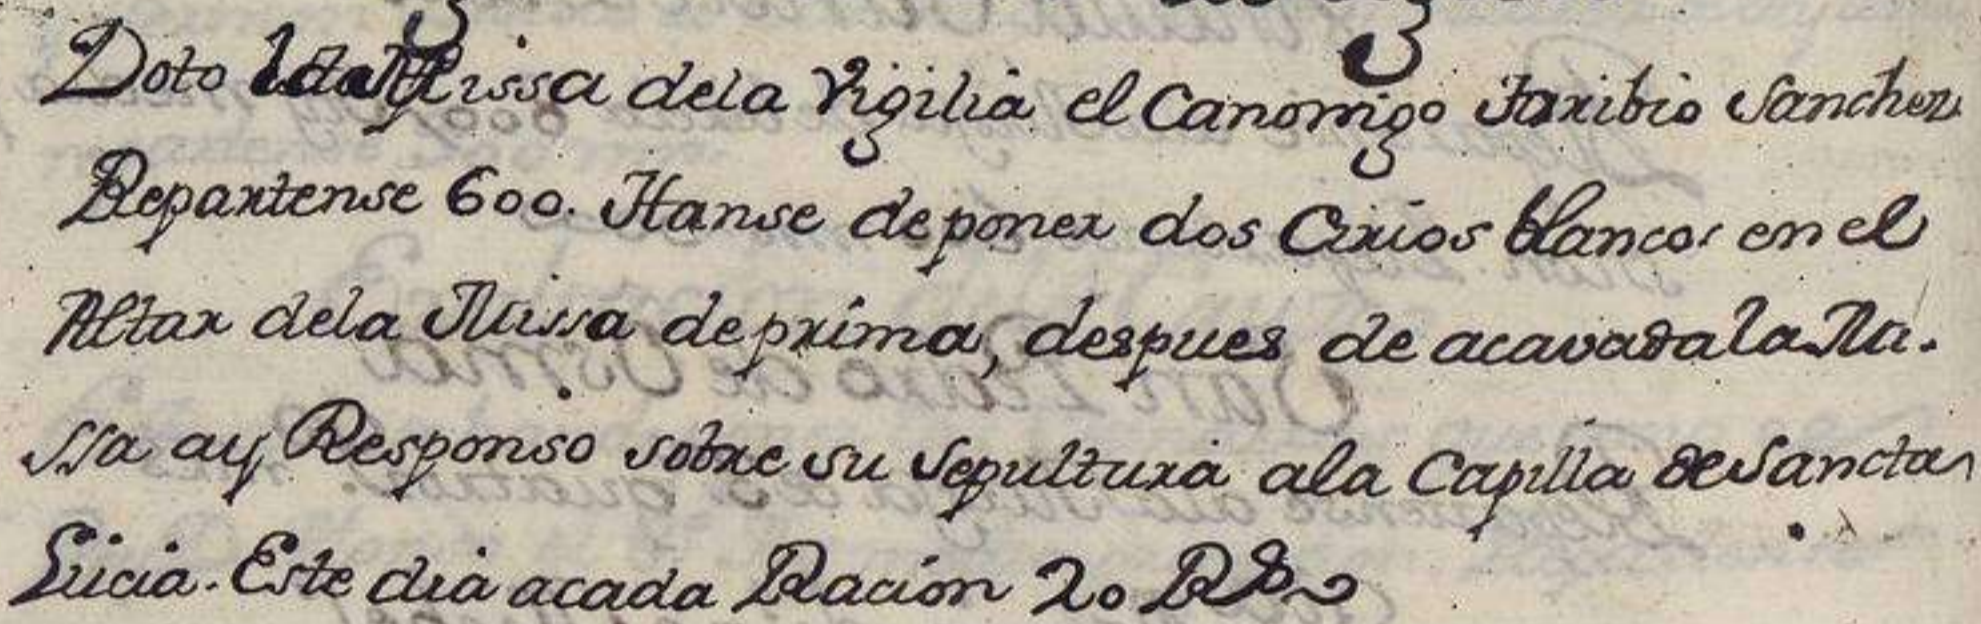 Doto la Missa dela Vigilia el Canonigo Toribio Sanchez
Repartense 600. Hanse deponer dos Cirios blancos en el
Altar dela Missa deprima, despues de acavada la Mi.
ssa ay Responso sobre su sepultura ala Capilla de Sancta
Lucia. Este dia acada Racion 20 Rs